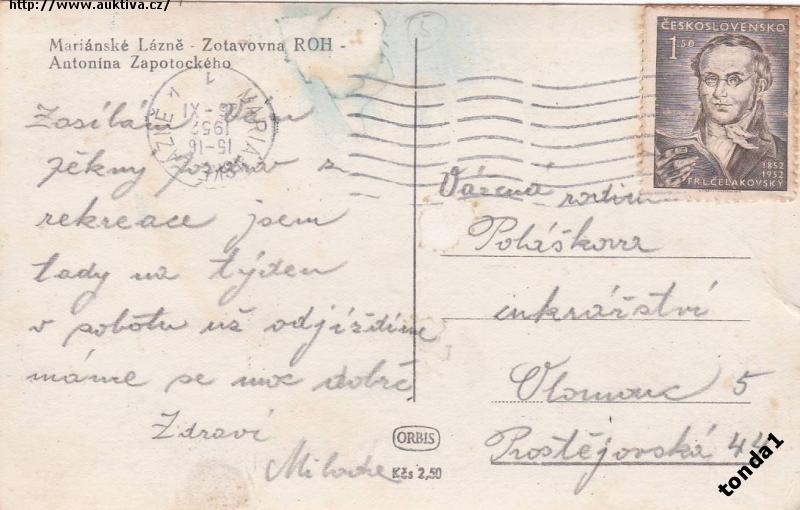 http://www.auktiva.cz/
Mariánské Lázně - Zotavovna ROH -
Antonína Zapotockého
Zasílám Vám
pěkný pozdrav z
rekreace jsem
tady na týden
v sobotu už odjíždíme
máme se moc dobře
Zdraví
ČESKOSLOVENSKO
1.50
1852
1952
FR.L.ČELAKOVSKÝ
1
XI
1952
15-16
Vážená rodina
Poláškova
cukrářství
Olomouc 5
Prostějovská 44
ORBIS
Kčs 2,50
tonda1